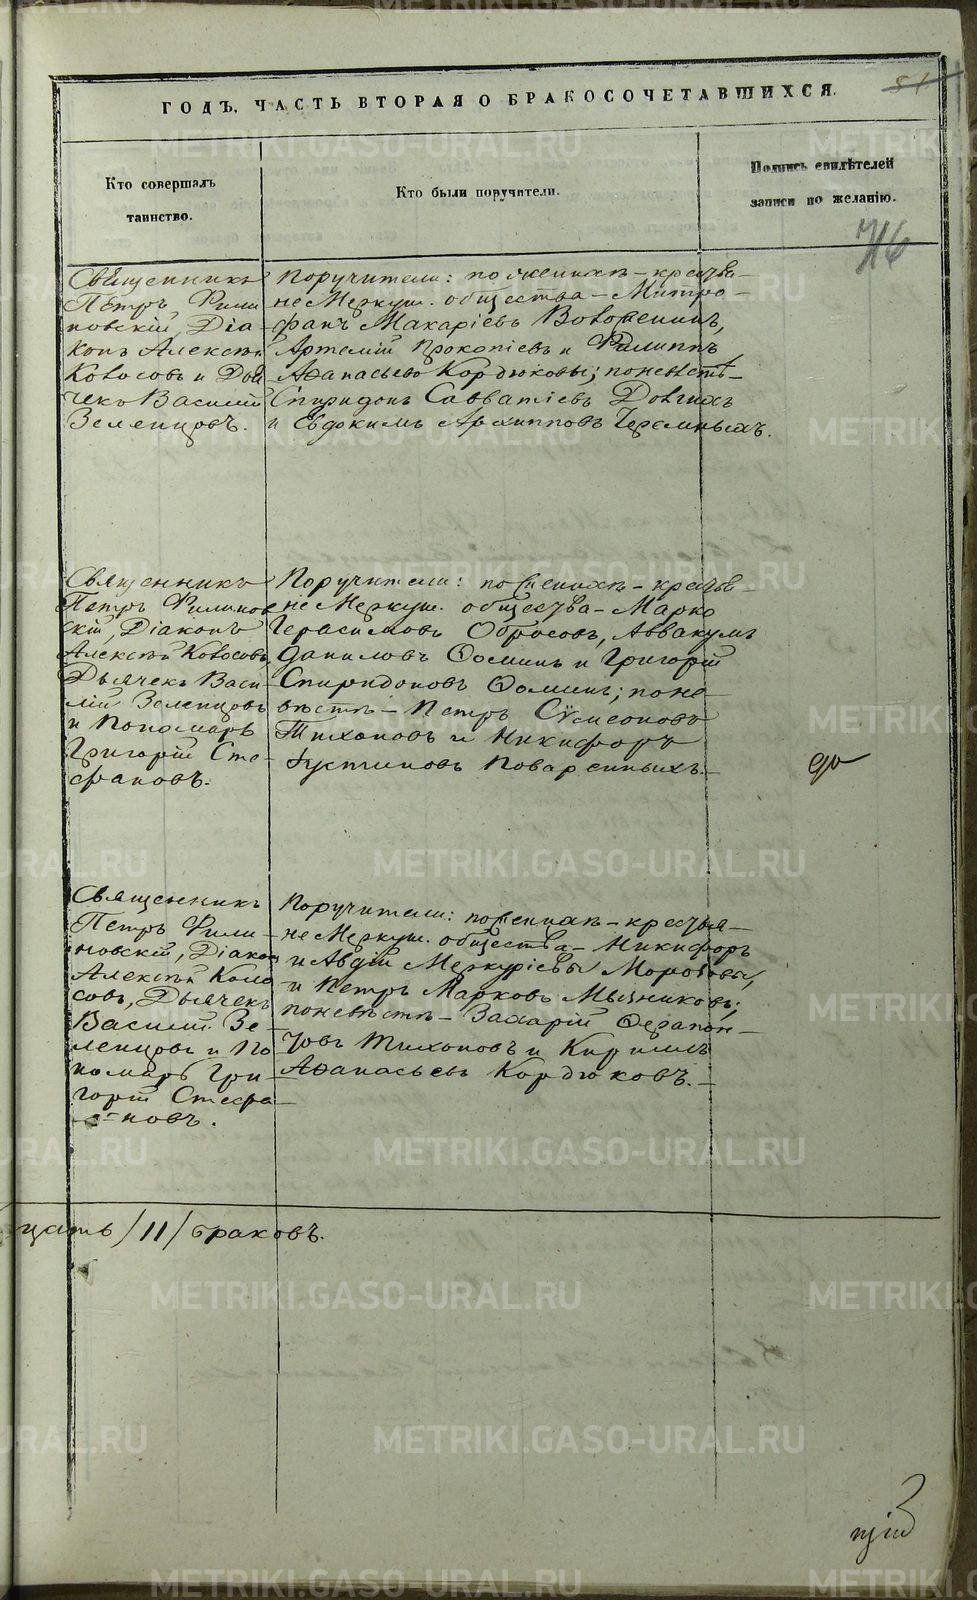 51
ГОДЪ, ЧАСТЬ ВТОРАЯ О БРАКОСОЧЕТАВШИХСЯ.
Кто совершалъ
таинство.
Кто были поручители.
Подпись свидѣтелей
записи по желанію.
Священникъ
Петръ Фили
повскій, Діа-
конъ Алексѣй
Колосовъ и Дья
чекъ Василій
Зеленцовъ.
Поручители: по женихѣ – крестья-
не Меркуш. общества – Митро-
фанъ Макаріевъ
Артемій Прокопіевъ и Филиппъ
Аѳанасьевъ Кордюковы; по невѣстѣ –
Спиридонъ Савватіевъ Долгихъ
и Евдокимъ Архипповъ Черемныхъ.
Священникъ
Петръ Филипов
скій, Діаконъ
Алексѣй Колосовъ,
Дьячекъ Васи-
лій Зеленцовъ
и Пономарь
Григорій Сте-
фановъ.
Поручители: по женихѣ – крестья-
не Меркуш. общества – Марко
Герасимовъ Обросовъ, Аввакумъ
Даниловъ Ѳоминъ и Григорій
Спиридоновъ Ѳоминъ; по не-
вѣстѣ – Петръ Сѵмеоновъ
Тихоновъ и Никифоръ
Іустиновъ Поваренныхъ. –
Священникъ
Петръ Фили-
повскій, Діаконъ
Алексѣй Коло
совъ, Дьячекъ
Василій Зе-
ленцовъ и По
номарь Гри-
горій Стефа-
новъ.
Поручители: по женихѣ – крестья-
не Меркуш. общества – Никифоръ
и Авдій Меркуріевы Морозовы,
и Петръ Марковъ Мызниковъ;
по невѣстѣ – Захарій Ѳерапон-
товъ Тихоновъ и Кириллъ
Аѳанасьевъ Кордюковъ. –
цать /11/ браковъ.
METRIKI.GASO-URAL.RU